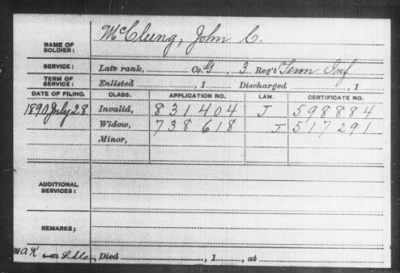 McClung, John C.
NAME OF SOLDIER:
SERVICE: Late rank, Co. G, 3 Reg't Tenn Inf
TERM OF SERVICE: Enlisted , 1 Discharged , 1
DATE OF FILING. CLASS. APPLICATION NO. LAW. CERTIFICATE NO.
1890 July 28 Invalid, 831404 J 598884
Widow, 738618 J 517291
Minor,
ADDITIONAL SERVICES:
REMARKS:
Died , 1 , at